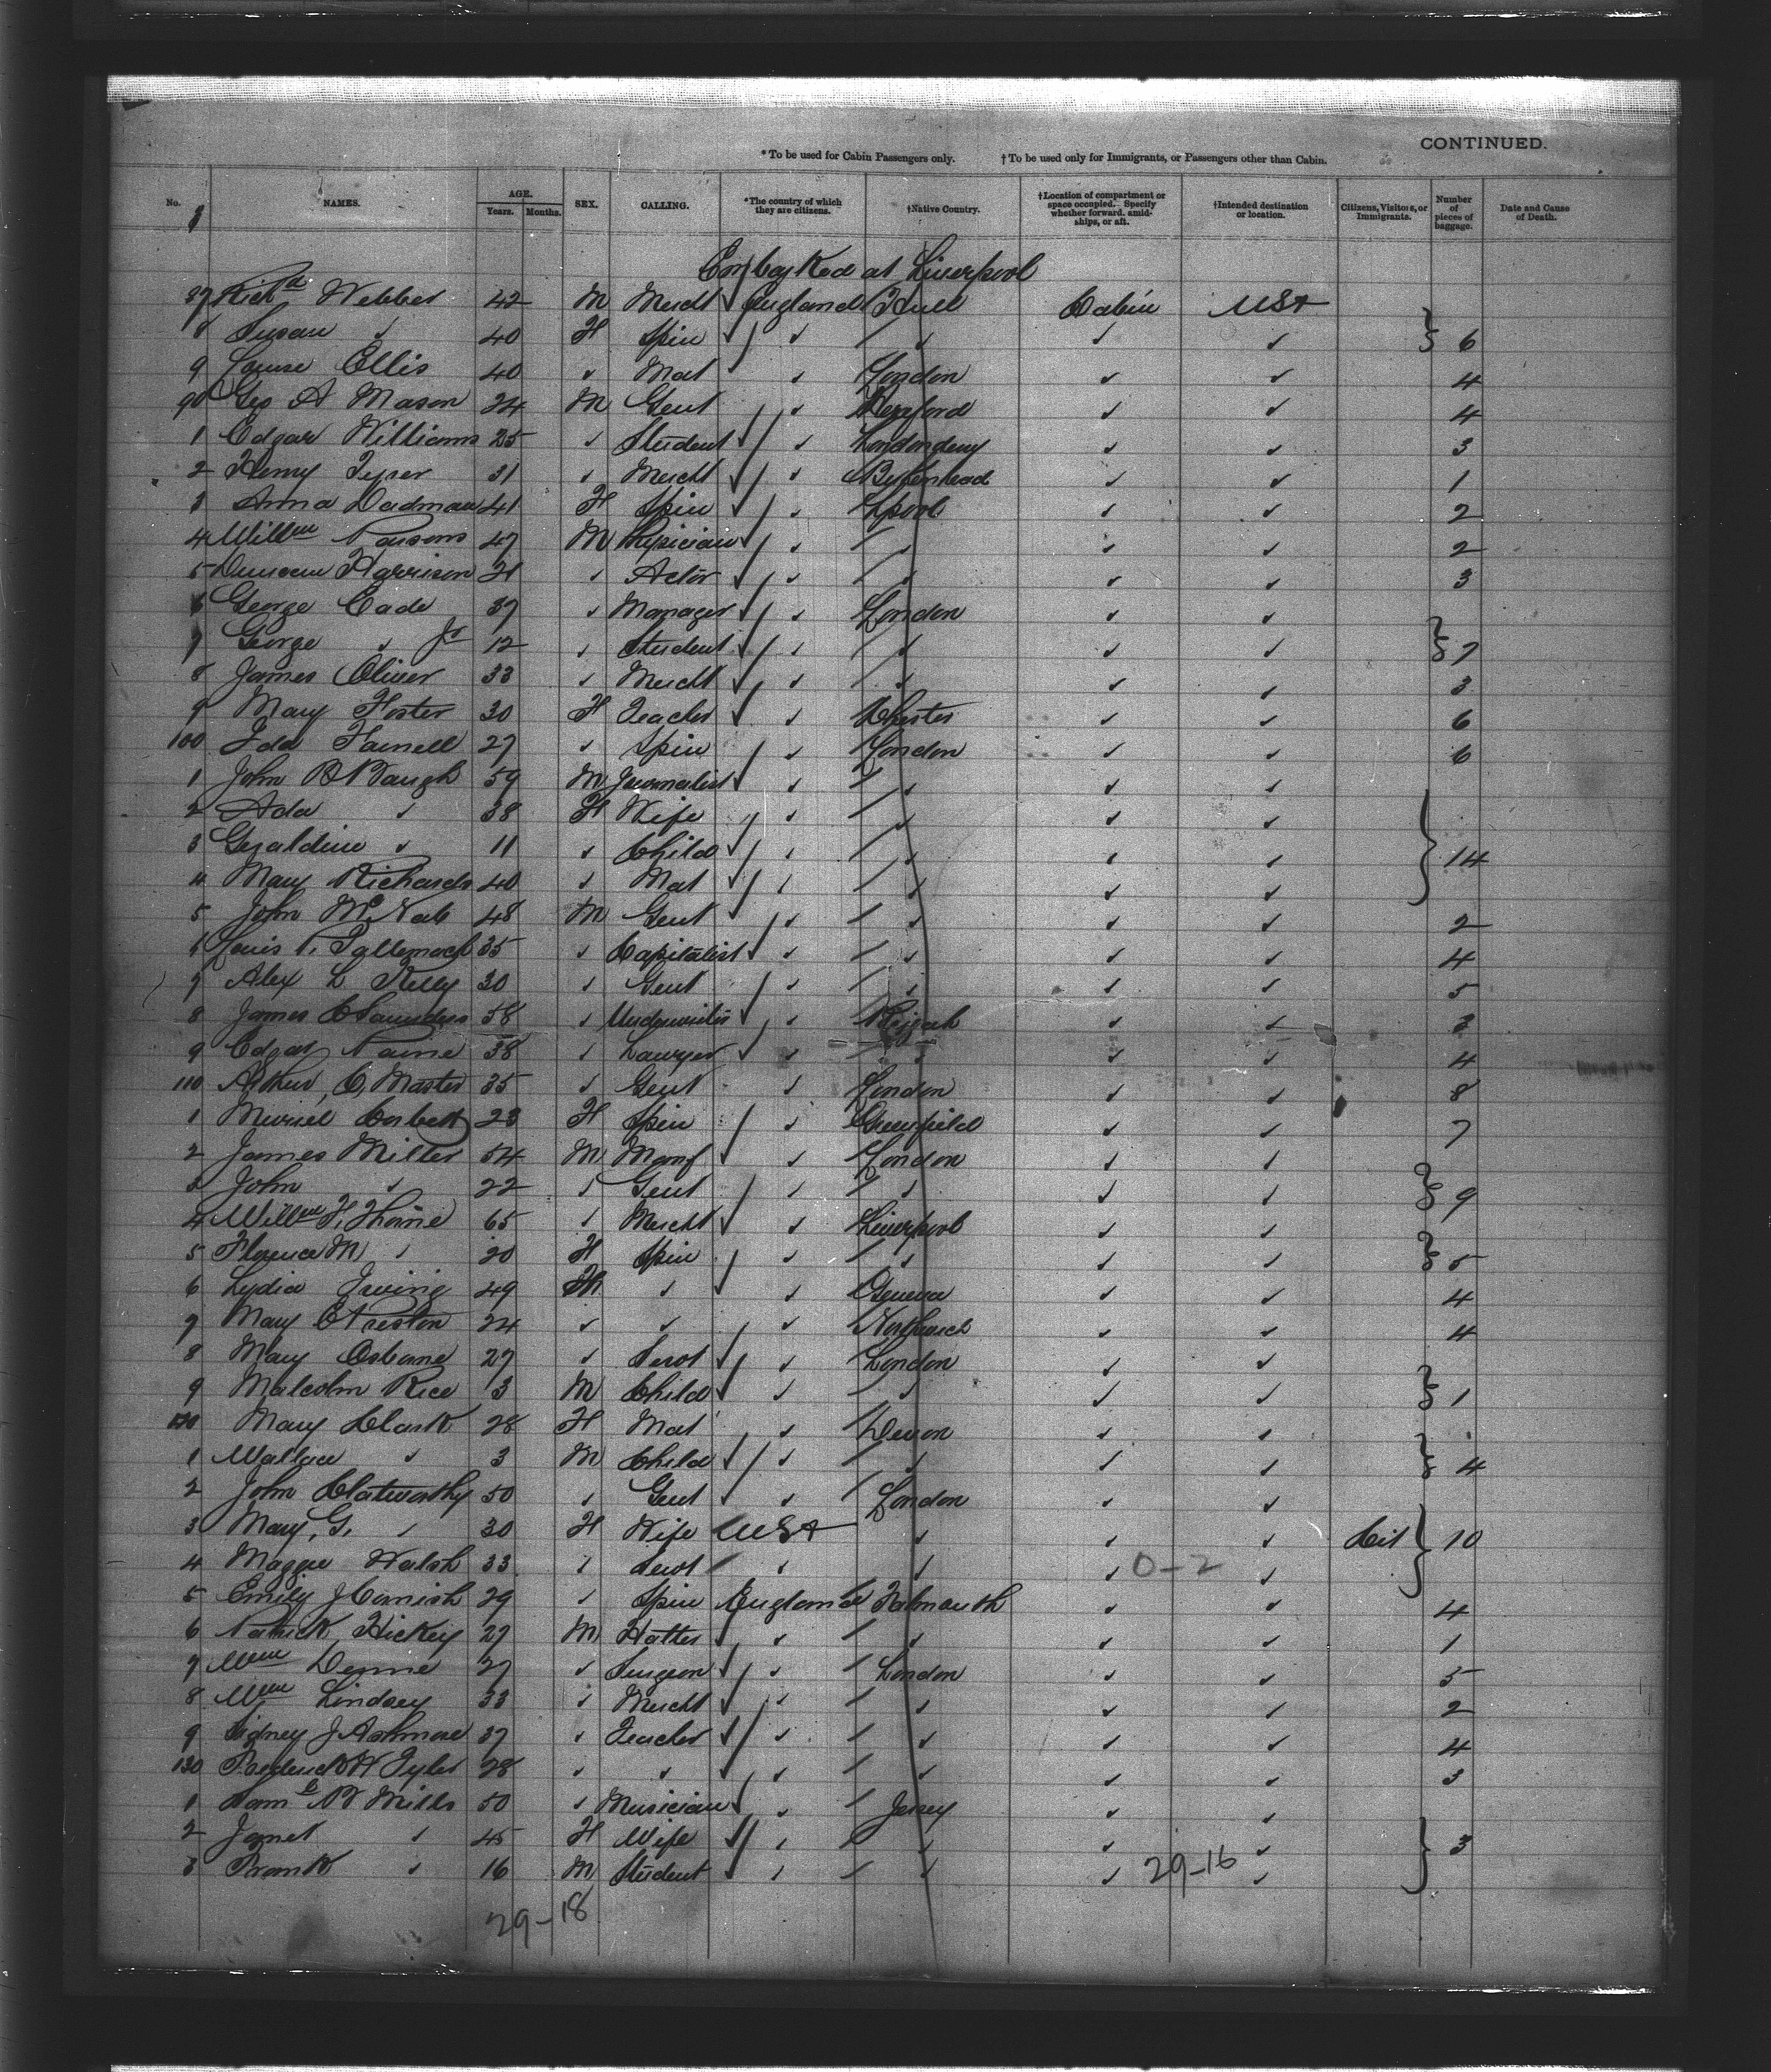 CONTINUED.
*To be used for Cabin Passengers only. †To be used only for Immigrants, or Passengers other than Cabin.
No. NAMES. AGE. Years. Months. SEX. CALLING. *The country of which they are citizens. †Native Country. †Location of compartment or space occupied. Specify whether forward, amidships, or aft. †Intended destination or location. Citizens, Visitors, or Immigrants. Number of pieces of baggage. Date and Cause of Death.
Embarked at Liverpool
87 Richd Webber 42 M Mercht England Hull Cabin USA
8 Susan 40 F Spin 6
9 Louise Ellis 40 Mat London 4
90 Geo A Mason 24 M Gent Hereford 4
1 Edgar Williams 25 Student Londonderry 3
2 Henry 31 Mercht Birkenhead 1
3 Anna Dadman 41 F Spin Lpool 2
4 Willm Parsons 47 M Physician 2
5 Duncan Harrison 21 Actor 3
6 George Cade 37 Manager London
7 George Jr 12 Student 7
8 James Oliver 33 Mercht 3
9 Mary Foster 30 F Teacher Chester 6
100 Ida 27 Spin London 6
1 John 59 M Journalist
2 Ada 38 F Wife
3 Geraldine 11 Child 14
4 Mary Richards 40 Mat
5 John McNab 48 M Gent 2
6 Louis 35 Capitalist 4
7 Alex L Kelly 30 Gent 5
8 James C Saunders 58 Underwriter 3
9 Edgar Paine 38 Lawyer 4
110 Arthur C, Master 35 Gent London 8
1 Muriel Corbett 23 F Spin Greenfield 7
2 James Miller 54 M Manf London
3 John 22 Gent 9
4 Willm F. Thorne 65 Mercht Liverpool
5 Florence M 20 F Spin 5
6 Lydia Irving 49 Geneva 4
7 Mary E Preston 24 4
8 Mary Osborne 27 Servt London
9 Malcolm Rice 3 M Child 1
120 Mary Clark 28 F Mat Devon
1 Wallace 3 M Child 4
2 John Clatworthy 50 Gent London
3 Mary, G. 30 F Wife USA Cit 10
4 Maggie Walsh 33 Servt 0-2
5 Emily J Cornish 29 Spin England Falmouth 4
6 Patrick Hickey 27 M Hatter 1
7 Wm Denne 27 Surgeon London 5
8 Wm Lindsey 33 Mercht 2
9 Sidney J Ashmore 37 Teacher 4
130 Frederick W Tyler 28 3
1 Saml W Mills 50 Musician Jersey
2 Janet 45 F Wife 3
3 Frank 16 M Student 29-16
29-18